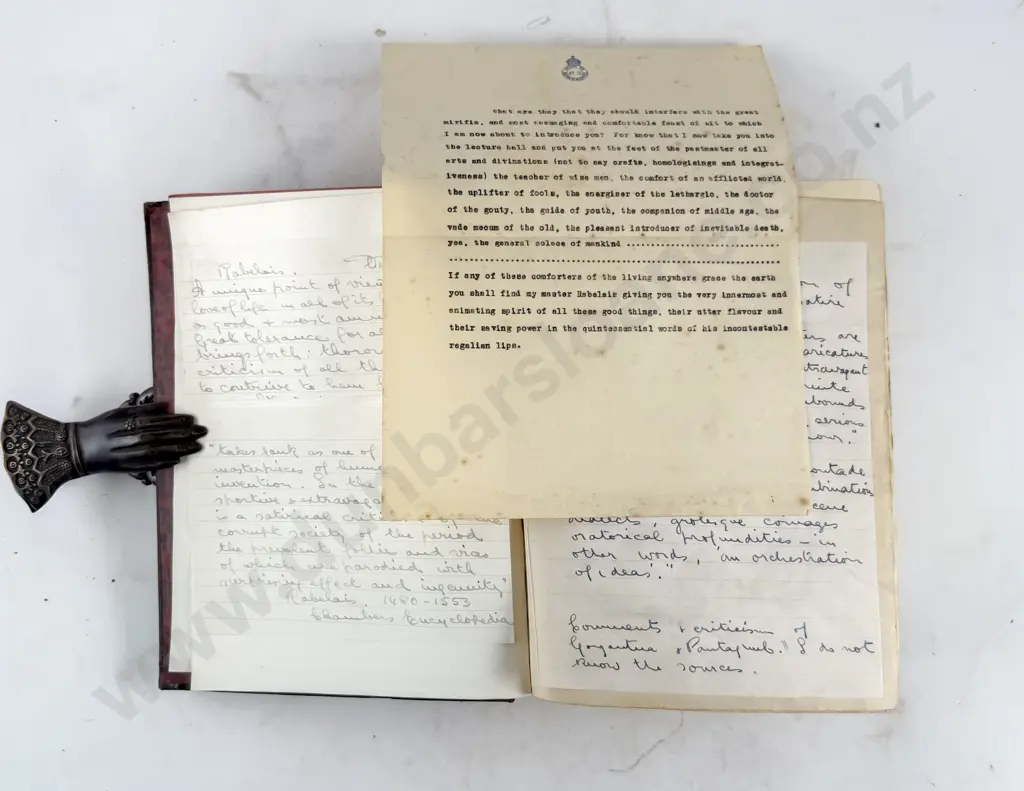 what are they that they should interfere with the great
mirific, and most assuaging and comfortable feast of wit to which
I am now about to introduce you? For know that I now take you into
the lecture hall and put you at the feet of the pastmaster of all
arts and divinations (not to say crafts, homologisings and integrat-
iveness) the teacher of wise men, the comfort of an afflicted world,
the uplifter of fools, the energiser of the lethargic, the doctor
of the gouty, the guide of youth, the companion of middle age, the
vade mecum of the old, the pleasant introducer of inevitable death,
yea, the general solace of mankind ..............................
................................................................
If any of these comforters of the living anywhere grace the earth
you shall find my master Rabelais giving you the very innermost and
animating spirit of all these good things, their utter flavour and
their saving power in the quintessential words of his incontestable
regalian lips.
Rabelais.
A unique point of view
love of life in all of its
as good + most
Great tolerance for al
brings forth; thoro
criticism of all th
to contrive to
"takes rank as one of
masterpieces of human
invention. In the
sportive & extravaga
is a satirical criti
corrupt society of the period
the prevalent follies and vices
of which are parodied with
surprising effect and ingenuity"
Rabelais. 1480-1553
Chambers Encyclopedia
of
satire
are
caricatures
extravagant
quite
abounds
serious
our."
dialects, grotesque coinages
oratorical profundities - in
other words, 'an orchestration
of ideas'."
Comments & criticism of
Gargantua & Pantagruel. I do not
know the sources.
www.dunbarsloane.co.nz